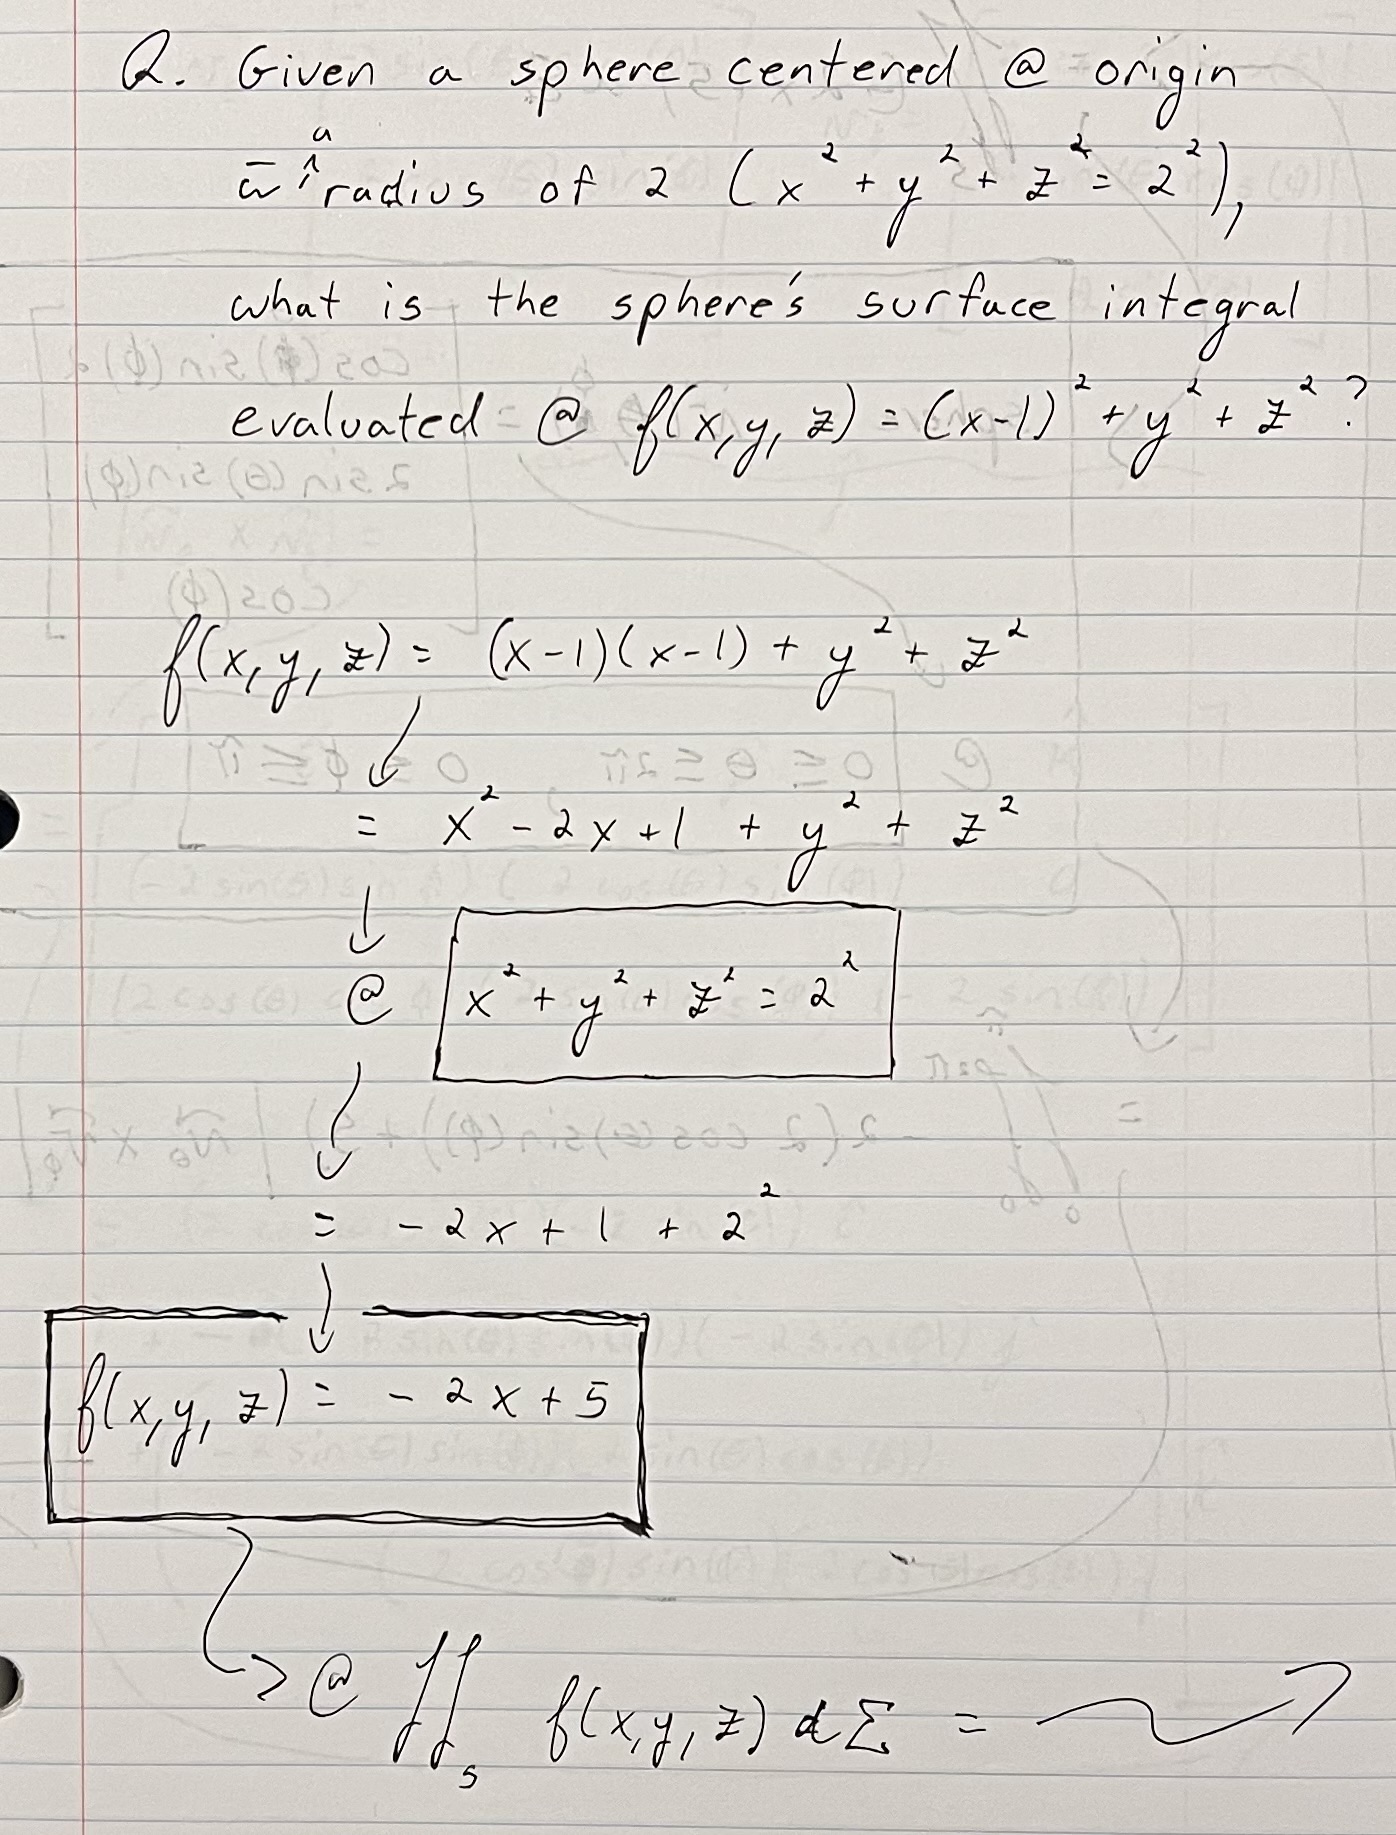 Q. Given a sphere centered @ origin
w̄ a radius of 2 (x² + y² + z² = 2²),
what is the sphere's surface integral
evaluated @ f(x, y, z) = (x-1)² + y² + z² ?
f(x, y, z) = (x-1)(x-1) + y² + z²
= x² - 2x + 1 + y² + z²
@ x² + y² + z² = 2²
= - 2x + 1 + 2²
f(x, y, z) = - 2x + 5
@ ∬_S f(x, y, z) dΣ =